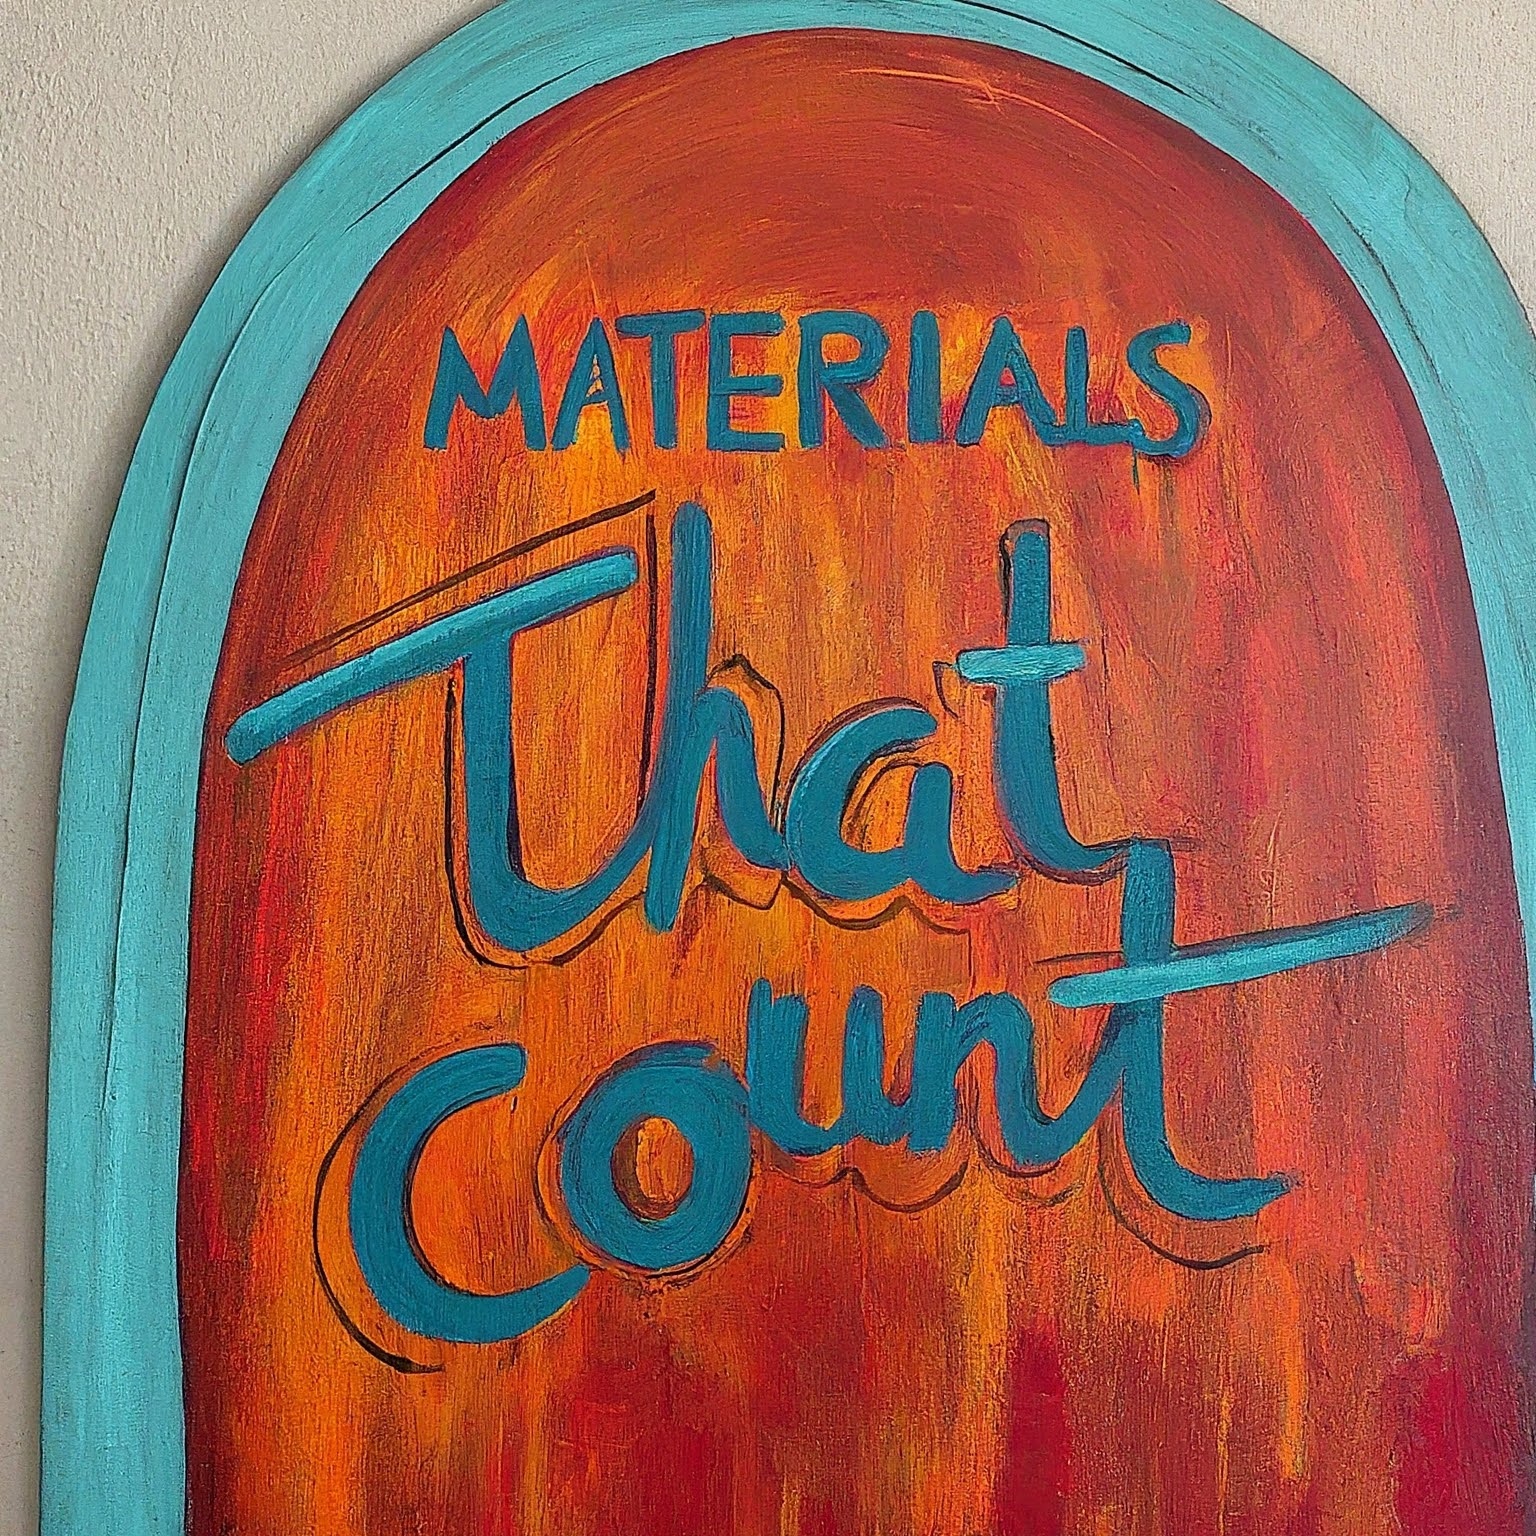 MATERIALS
That
count